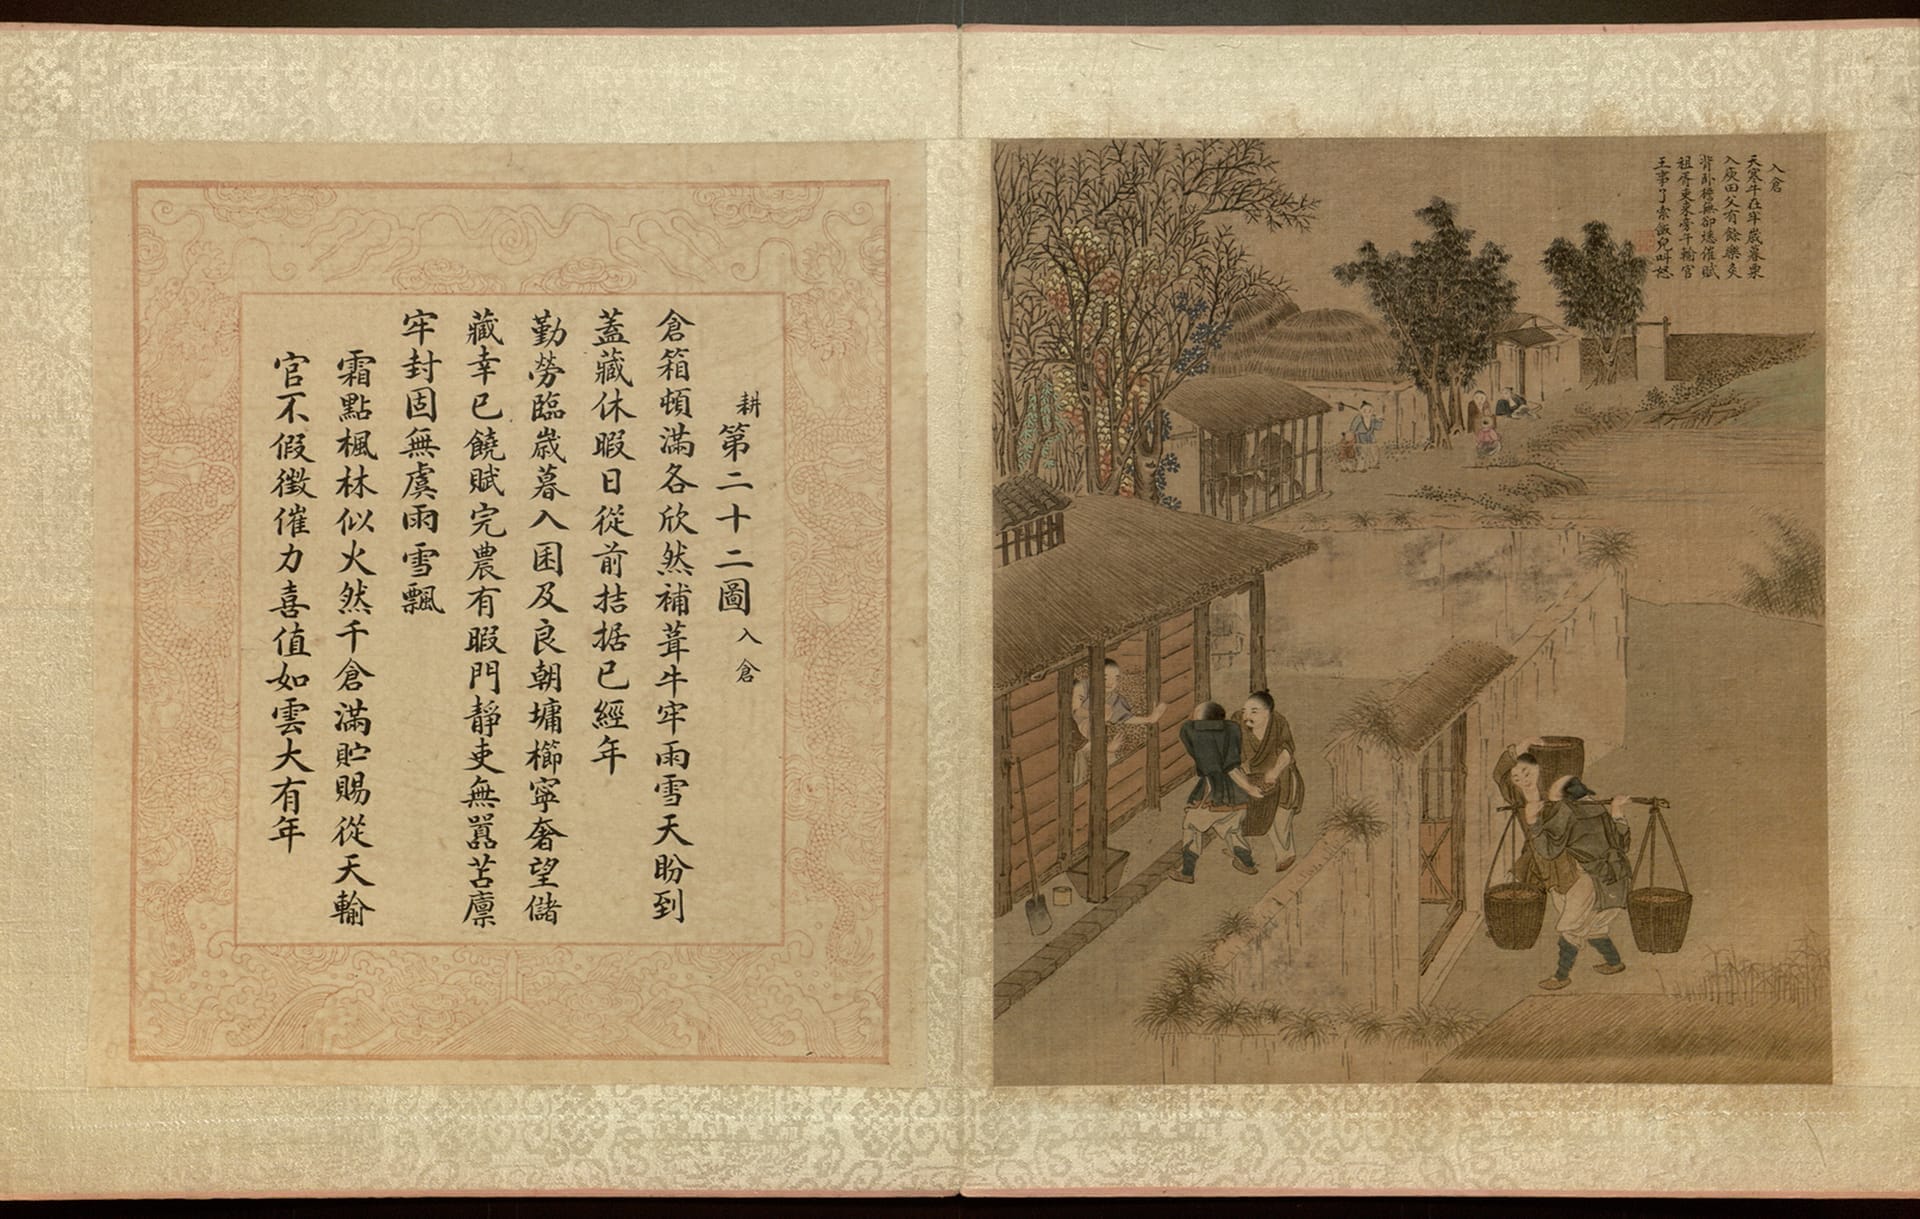 入倉
天寒牛在牢歲暮粟
入庾田父有餘樂炙
背卧檐廡卻愁催賦
租胥吏來旁午輸官
王事了索飯兒叫怒
耕第二十二圖入倉
倉箱頓滿各欣然補葺牛牢雨雪天盼到
蓋藏休暇日從前拮据已經年
勤勞臨歲暮入囷及良朝墉櫛寧奢望儲
藏幸已饒賦完農有暇門靜吏無囂苫廩
牢封固無虞雨雪飄
霜點楓林似火然千倉滿貯賜從天輸
官不假徵催力喜值如雲大有年